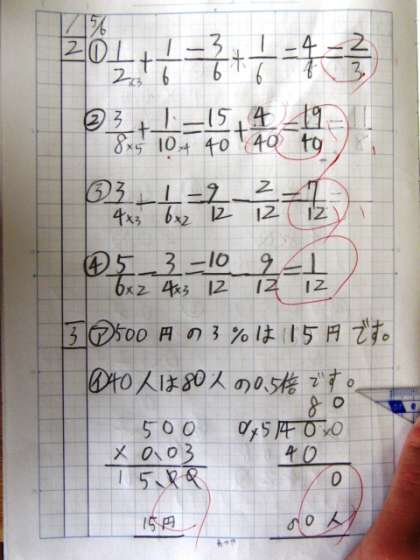 1 5/6
2 ① 1/2×3 + 1/6 = 3/6 + 1/6 = 4/6 = 2/3
② 3/8×5 + 1/10×4 = 15/40 + 4/40 = 19/40
③ 3/4×3 - 1/6×2 = 9/12 - 2/12 = 7/12
④ 5/6×2 - 3/4×3 = 10/12 - 9/12 = 1/12
3 ㋐ 500円の3%は15円です。
㋑ 40人は80人の0.5倍です。
80
500
0.5 40.0
×0.03
40
15.00
0
15円
80人